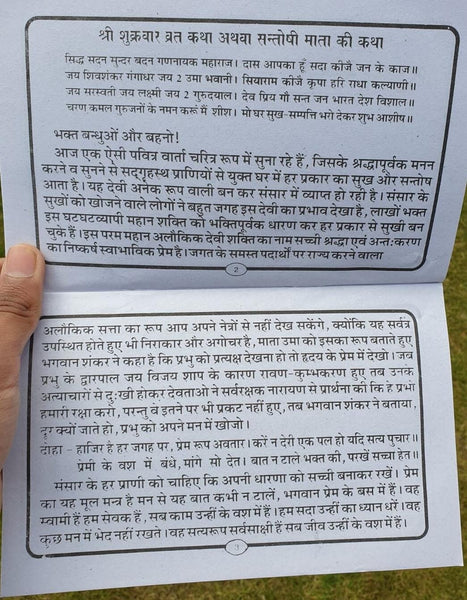 श्री शुक्रवार व्रत कथा अथवा सन्तोषी माता की कथा
सिद्ध सदन सुन्दर बदन गणनायक महाराज। दास आपका हूं सदा कीजै जन के काज॥
जय शिवशंकर गंगाधर जय 2 उमा भवानी। सियाराम कीजैं कृपा हरि राधा कल्याणी॥
जय सरस्वती जय लक्ष्मी जय 2 गुरुदयाल। देव प्रिय गौ सन्त जन भारत देश विशाल॥
चरण कमल गुरुजनों के नमन करूं मैं शीश। मो घर सुख-सम्पत्ति भरो देकर शुभ आशीष॥
भक्त बन्धुओं और बहनो!
आज एक ऐसी पवित्र वार्ता चरित्र रूप में सुना रहे हैं, जिसके श्रद्धापूर्वक मनन
करने व सुनने से सद्गृहस्थ प्राणियों से युक्त घर में हर प्रकार का सुख और सन्तोष
आता है। यह देवी अनेक रूप वाली बन कर संसार में व्याप्त हो रही है। संसार के
सुखों को खोजने वाले लोगों ने बहुत जगह इस देवी का प्रभाव देखा है, लाखों भक्त
इस घटघटव्यापी महान शक्ति को भक्तिपूर्वक धारण कर हर प्रकार से सुखी बन
चुके हैं। इस परम महान अलौकिक देवी शक्ति का नाम सच्ची श्रद्धा एवं अन्तःकरण
का निष्कर्ष स्वाभाविक प्रेम है। जगत के समस्त पदार्थों पर राज्य करने वाला
2
अलौकिक सत्ता का रूप आप अपने नेत्रों से नहीं देख सकेंगे, क्योंकि यह सर्वत्र
उपस्थित होते हुए भी निराकार और अगोचर है, माता उमा को इसका रूप बताते हुए
भगवान शंकर ने कहा है कि प्रभु को प्रत्यक्ष देखना हो तो हृदय के प्रेम में देखो। जब
प्रभु के द्वारपाल जय विजय शाप के कारण रावण-कुम्भकरण हुए तब उनके
अत्याचारों से दुःखी होकर देवताओ ने सर्वरक्षक नारायण से प्रार्थना की कि हे प्रभो
हमारी रक्षा करो, परन्तु वे इतने पर भी प्रकट नहीं हुए, तब भगवान शंकर ने बताया,
दूर क्यों जाते हो, प्रभु को अपने मन में खोजो।
दोहा - हाजिर है हर जगह पर, प्रेम रूप अवतार। करें न देरी एक पल हो यदि सत्य पुचार॥
प्रेमी के वश में बंधे, मांगे सो देत। बात न टाले भक्त की, परखें सच्चा हेत॥
संसार के हर प्राणी को चाहिए कि अपनी धारणा को सच्ची बनाकर रखें। प्रेम
का यह मूल मन्त्र है मन से यह बात कभी न टालें, भगवान प्रेम के बस में हैं। वह
स्वामी हैं हम सेवक हैं, सब काम उन्हीं के वश में हैं। हम सदा उन्हीं का ध्यान धरें। वह
कुछ मन में भेद नहीं रखते। वह सत्यरूप सर्वसाक्षी हैं सब जीव उन्हीं के वश में हैं।
3